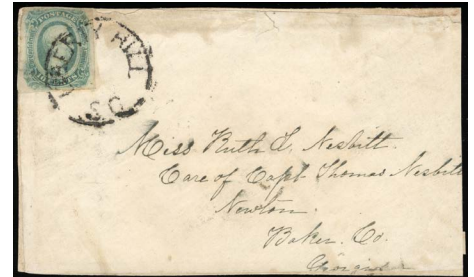 POSTAGE
LIBERTY HILL
S.C.
Miss Ruth L. Nesbitt.
Care of Capt Thomas Nesbitt
Newton.
Baker. Co.
Georgia